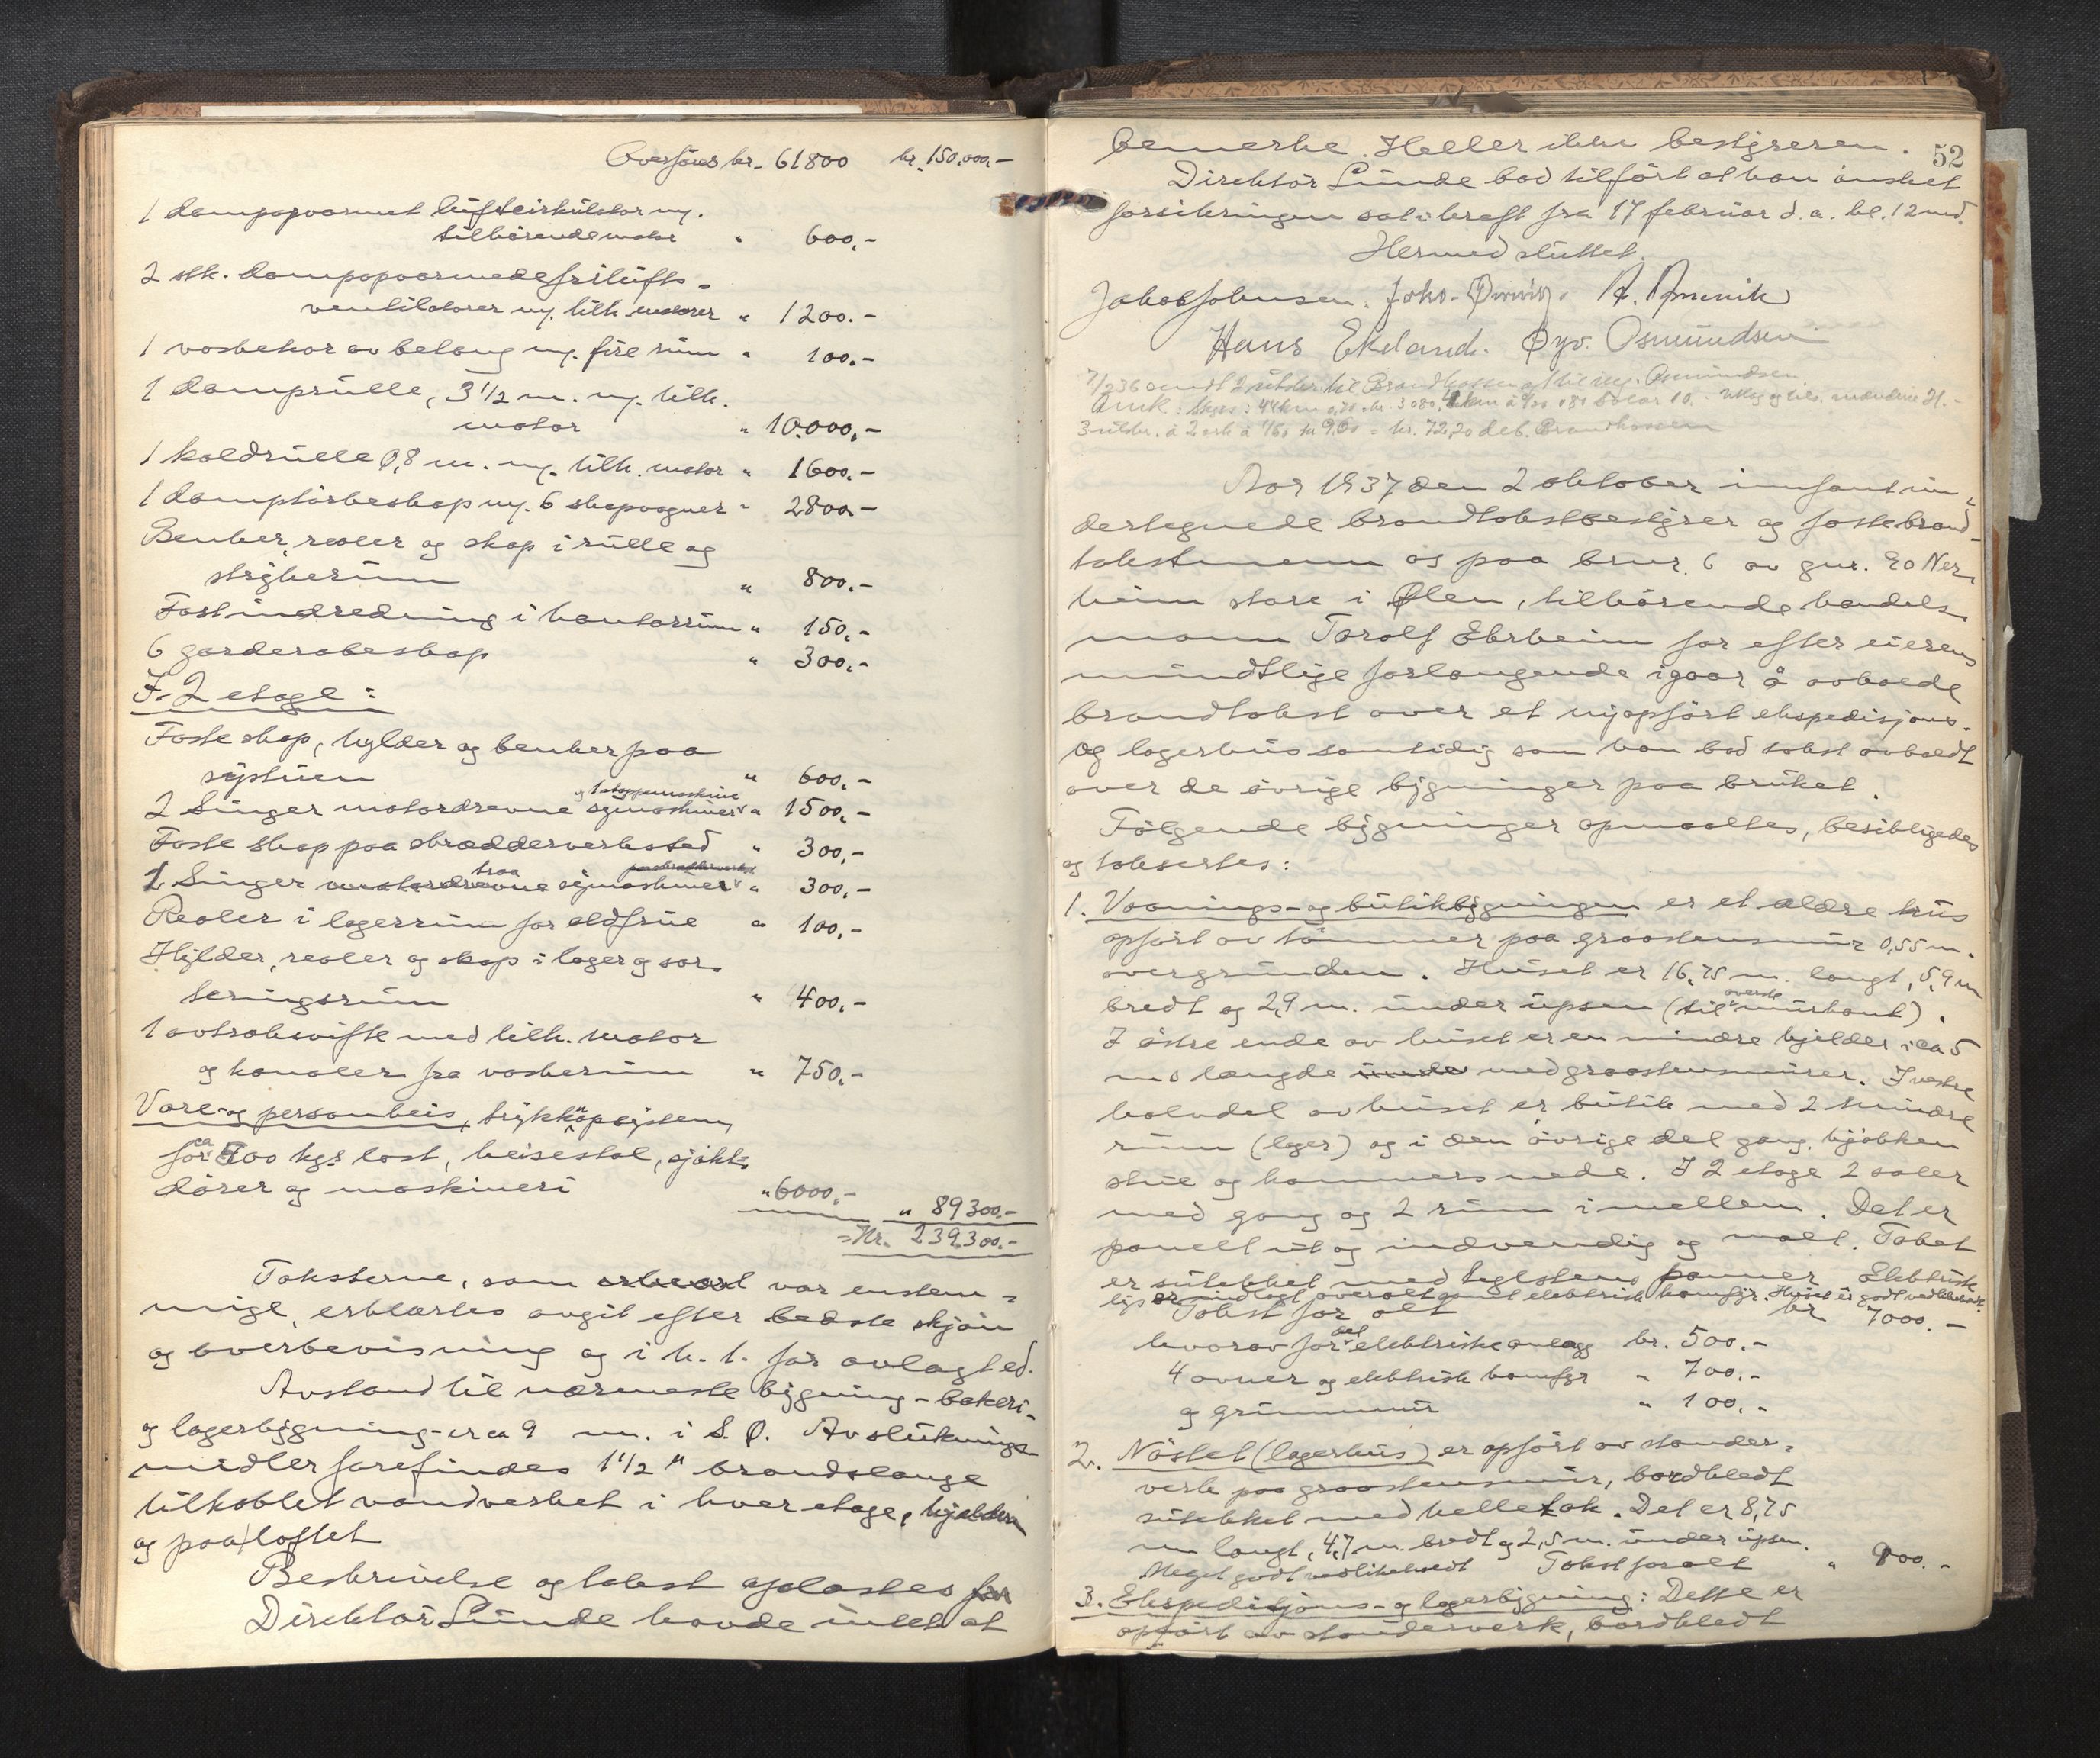 Overføres kr. 61800 kr. 150.000,-
1 dampopvarmet luftcirkulator m/.
tilhørende motor " 600,-
2 stk. dampopvarmede frilufts-
ventilatorer m/. tilh. motorer " 1200.-
1 vaskekar av betong m/. fire rum " 100.-
1 damprulle, 3 1/2 m. m/. tilh.
motor " 10.000,-
1 koldrulle 0,8 m. m/. tilh. motor " 1600.-
1 damptørkeskap m/. 6 skapvogner " 2800.-
Benker, reoler og skap i rulle og
strykerum " 800.-
Fast indredning i kontorrum " 150.-
6 garderobeskap " 300.-
I. 2 etage:
Faste skap, hylder og benker paa
systuen " 600,-
og 1 stoppemaskine
2 Singer motordrevne symaskiner " 1500,-
Faste skap paa skrædderverksted " 300,-
traa paa skrædderverkst.
1 Singer motordrevne symaskiner " 300,-
Reoler i lagerrum for oldfrue " 100,-
Hylder, reoler og skap i lager og sor-
teringsrum " 400,-
1 avtraksvifte med tilh. motor
og kanaler fra vaskerum " 750,-
Vare- og personheis, trykknapsystem,
for ca 700 kgs last, heisestol, sjakt-
dører og maskineri " 6000,- " 89300.-
= Kr. 239.300.-
Taksterne, som var enstem-
mige, erklærtes avgit efter bedste skjøn
og overbevisning og i h. t. før avlagt ed.
Avstand til nærmeste bygning - bakeri-
og lagerbygning - er ca 9 m. i S.Ø. Avsluknings-
midler forefindes 1 1/2" brandslange
tilkoblet vandverket i hver etage, kjelderen
og paa loftet
Beskrivelse og takst oplæstes for
Direktør Sunde havde intet at
52
bemerke. Heller ikke bestyreren.
Direktør Sunde bad tilført at han ønsket
forsikringen sat i kraft fra 17 februar d. a. kl. 12 md.
Hermed sluttet.
Jakob Johnsen. Hans Ekeland. Øyv. Osmundsen
Aar 1937 den 2 oktober innfant un-
dertegnede brandtakstbestyrer og faste brand-
takstmenn os paa brnr. 6 av gnr. 90 Ner-
heim store i Ølen, tilhørende handels-
mann Torolf Ebrheim for efter eierens
mundtlige forlangende igaar å avholde
brandtakst over et nyopført ekspedisjons-
og lagerhus samtidig som han bad takst avholdt
over de øvrige bygninger paa bruket.
Følgende bygninger opmaaltes, besiktigedes
og taksertes:
1. Vaanings- og butikbygningen er et ældre hus
opført av tømmer paa graastensmur 0,55 m.
over grunden. Huset er 16,75 m. langt, 5,9 m
bredt og 2,9 m. under upsen (til øverste murkant).
I østre ende av huset er en mindre kjelder i ca 5
m s længde med graastensmurer. I vestre
halvdel av huset er butik med 2 mindre
rum (lager) og i den øvrige del gang, kjøkken
stue og kammers nede. I 2 etage 2 saler
med gang og 2 rum i mellem. Det er
panelt ut og indvendig og malt. Taket
er utekket med teglstens panner Elektrisk
lys er indlagt overalt samt elektrisk komfyr. Huset er godt vedlikeholdt.
Takst for alt kr 7000.-
hvorav for det elektriske anlegg kr. 500.-
4 ovner og elektrisk komfyr " 700.-
og grunnmur " 100.-
2. Nøstet (lagerhus) er opført av stender-
verk paa graastensmur, bordkledt
utekket med helletak. Det er 8,75
m langt, 4,7 m. bredt og 2,5 m. under upsen.
Meget godt vedlikeholdt Takst for alt " 900.-
3. Ekspeditjons- og lagerbygning: Dette er
opført av stenderverk, bordkledt